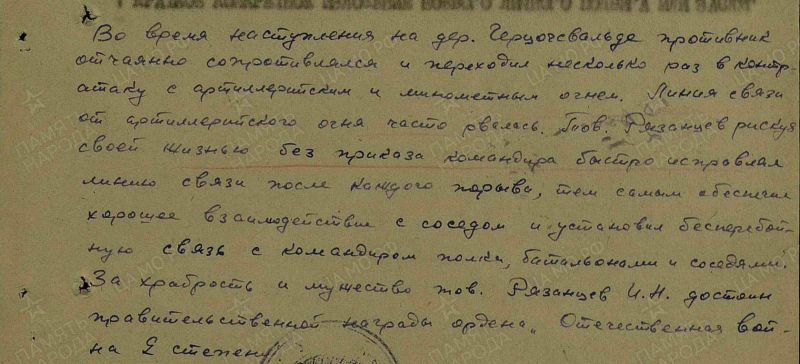 Во время наступления на дер. Герцогсвальде противник
отчаянно сопротивлялся и переходил несколько раз в контр-
атаку с артиллерийским и минометным огнем. Линия связи
от артиллерийского огня часто рвалась. Тов. Рязанцев рискуя
своей жизнью без приказа командира быстро исправлял
линию связи после каждого порыва, тем самым обеспечил
хорошее взаимодействие с соседом и установил бесперебой-
ную связь с командиром полка, батальонами и соседями.
За храбрость и мужество тов. Рязанцев И.Н. достоин
правительственной награды ордена „Отечественная вой-
на 2 степени